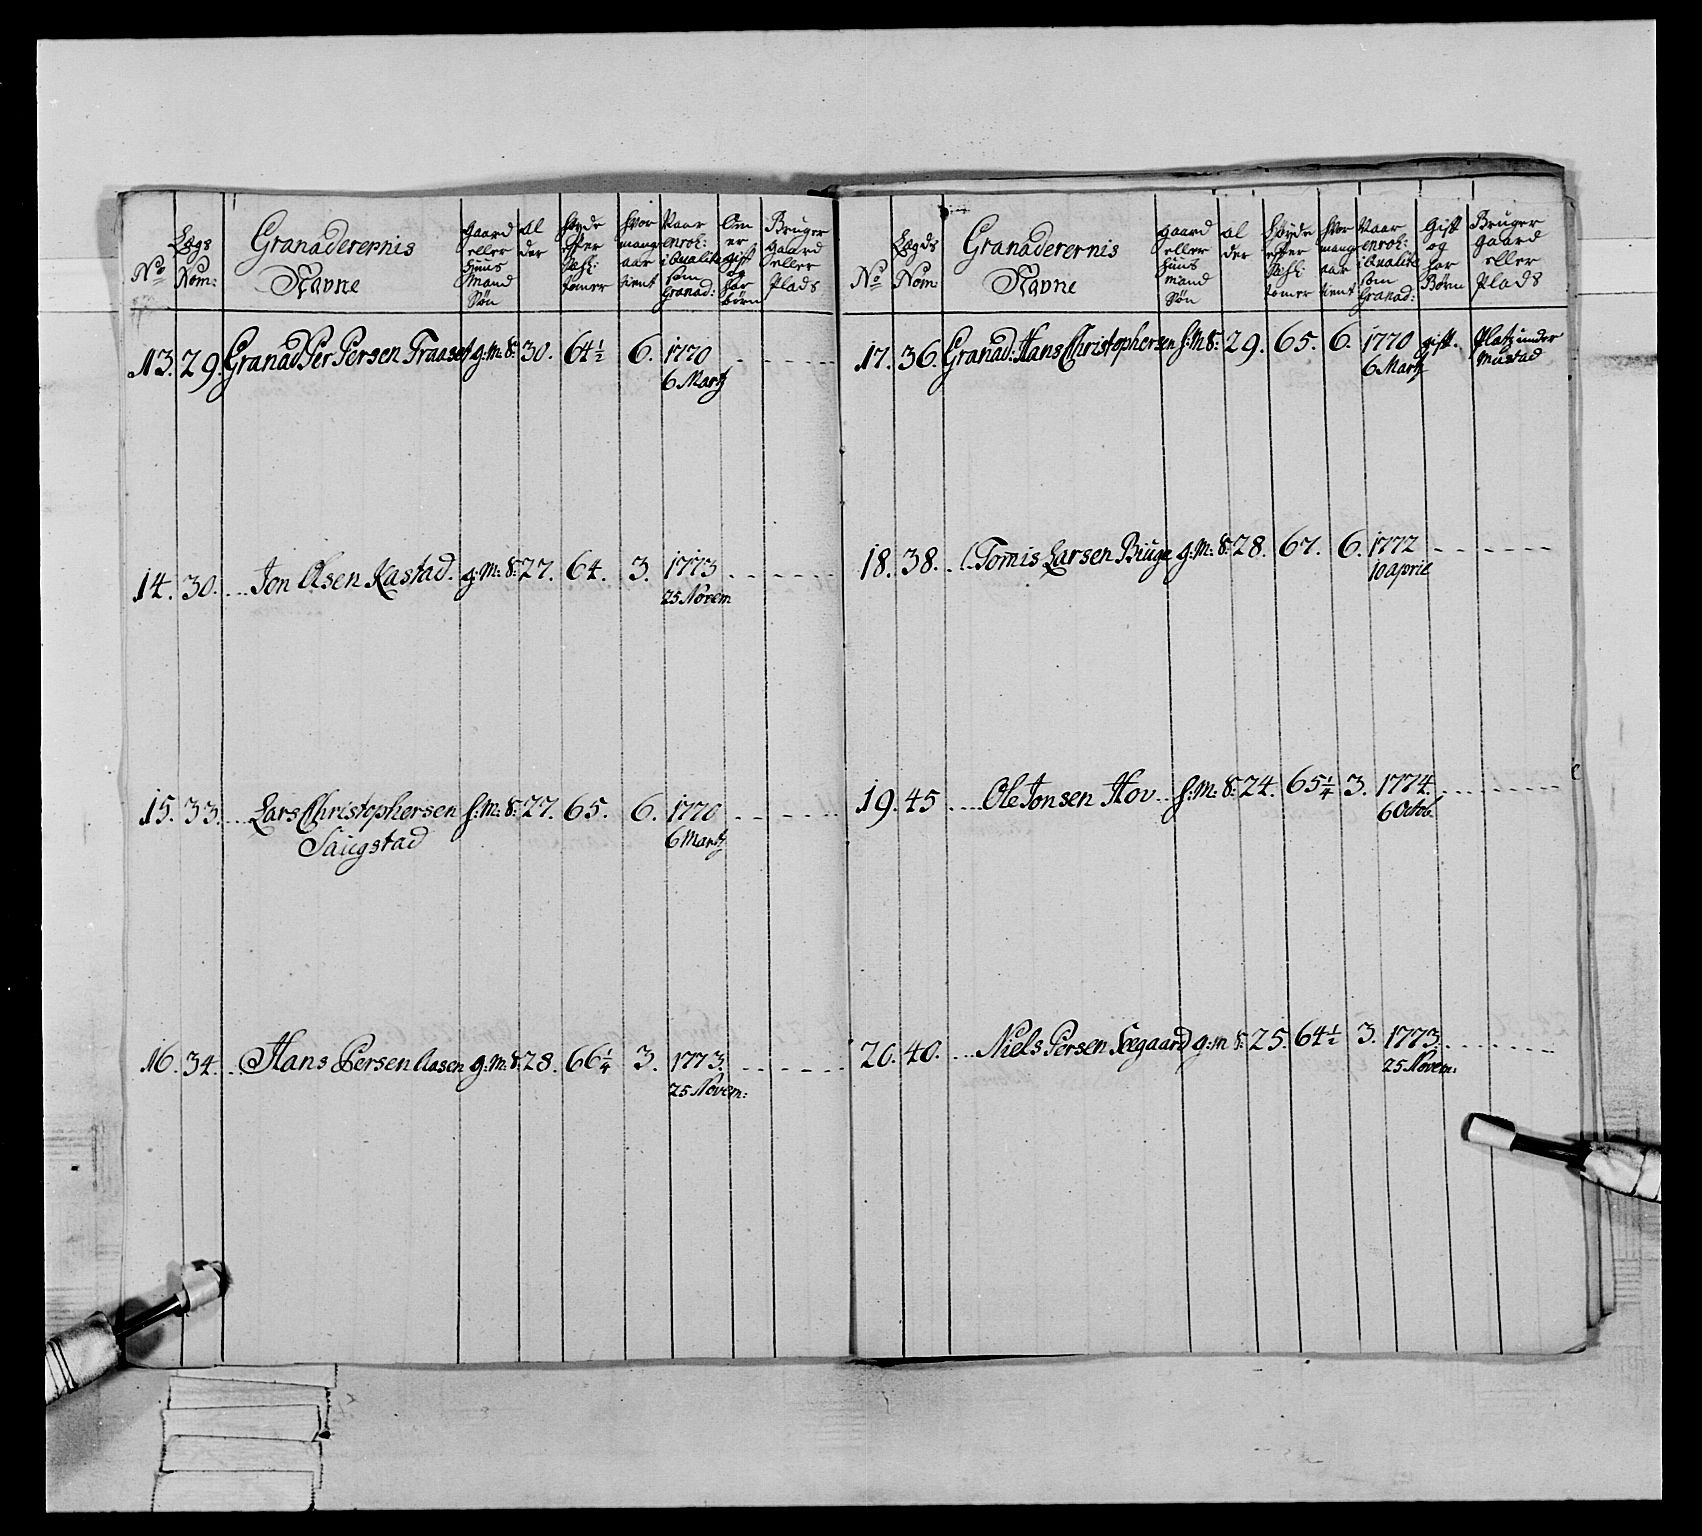 No
Lægs Nom:
Granaderernis Navne
gaard eller Huus mand Søn
al der
Høyde efter Sæsl: tomer
Hvor mange aar tient
Naar enrol: i Qualite som Granad:
Om er gift og har børn
Bruger gaard eller Plads
13. 29. Granad Per Persen Traaset g: M: S: 30. 64½ 6. 1770
6 Martz
14. 30. Jon Olsen Kastad. g: M: S: 27. 64. 3. 1773
25 Novem
15. 33. Lars Christophersen H: M: S: 27. 65. 6. 1770
Saugstad 6 Martz
16. 34. Hans Persen Aasen g: M: S: 28. 66¼ 3. 1773.
25 Novem:
No
Lægds Nom:
Granaderernis Navne
gaard eller Huus mand Søn
al der
Høyde efter Sæsl: tomer
Hvor mang aar tient
Naar enrol: i Qualite som Granad:
Gift og har Børn
Bruger gaard eller Plads
17. 36. Granad: Hans Christophersen H: M S: 29. 65. 6. 1770 gift. Platz under
6 Martz Mustad
18. 38. Tomis Larsen Biuge g: M: S: 28. 67. 6. 1772
10 aprie
19. 45 Ole Jonsen Hov H: M: S: 24. 65¼ 3. 1774.
6 Octob.
20. 40. Niels Persen Seegaard g: m S: 25. 64½ 3. 1773.
25 Novem: